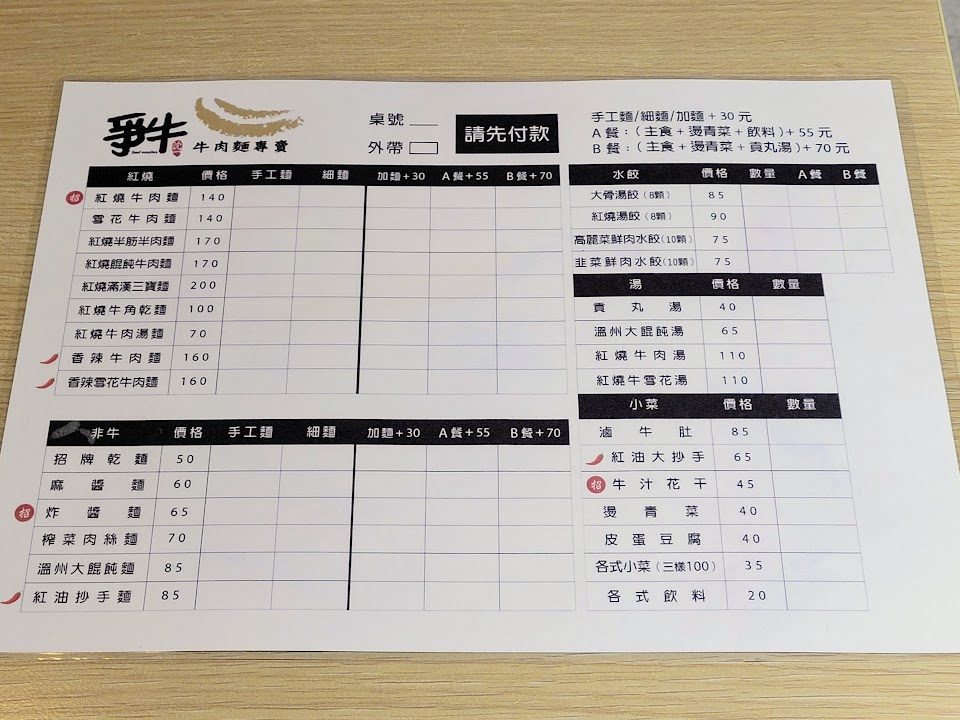 爭牛
beef noodles
牛肉麵專賣
桌號
外帶
請先付款
手工麵/細麵/加麵+30元
A餐:(主食+燙青菜+飲料)+55元
B餐:(主食+燙青菜+貢丸湯)+70元
紅燒 價格 手工麵 細麵 加麵+30 A餐+55 B餐+70
招 紅燒牛肉麵 140
雪花牛肉麵 140
紅燒半筋半肉麵 170
紅燒餛飩牛肉麵 170
紅燒滿漢三寶麵 200
紅燒牛角乾麵 100
紅燒牛肉湯麵 70
香辣牛肉麵 160
香辣雪花牛肉麵 160
非牛 價格 手工麵 細麵 加麵+30 A餐+55 B餐+70
招牌乾麵 50
麻醬麵 60
招 炸醬麵 65
榨菜肉絲麵 70
溫州大餛飩麵 85
紅油抄手麵 85
水餃 價格 數量 A餐 B餐
大骨湯餃(8顆) 85
紅燒湯餃(8顆) 90
高麗菜鮮肉水餃(10顆) 75
韭菜鮮肉水餃(10顆) 75
湯 價格 數量
貢丸湯 40
溫州大餛飩湯 65
紅燒牛肉湯 110
紅燒牛雪花湯 110
小菜 價格 數量
滷牛肚 85
紅油大抄手 65
招 牛汁花干 45
燙青菜 40
皮蛋豆腐 40
各式小菜(三樣100) 35
各式飲料 20